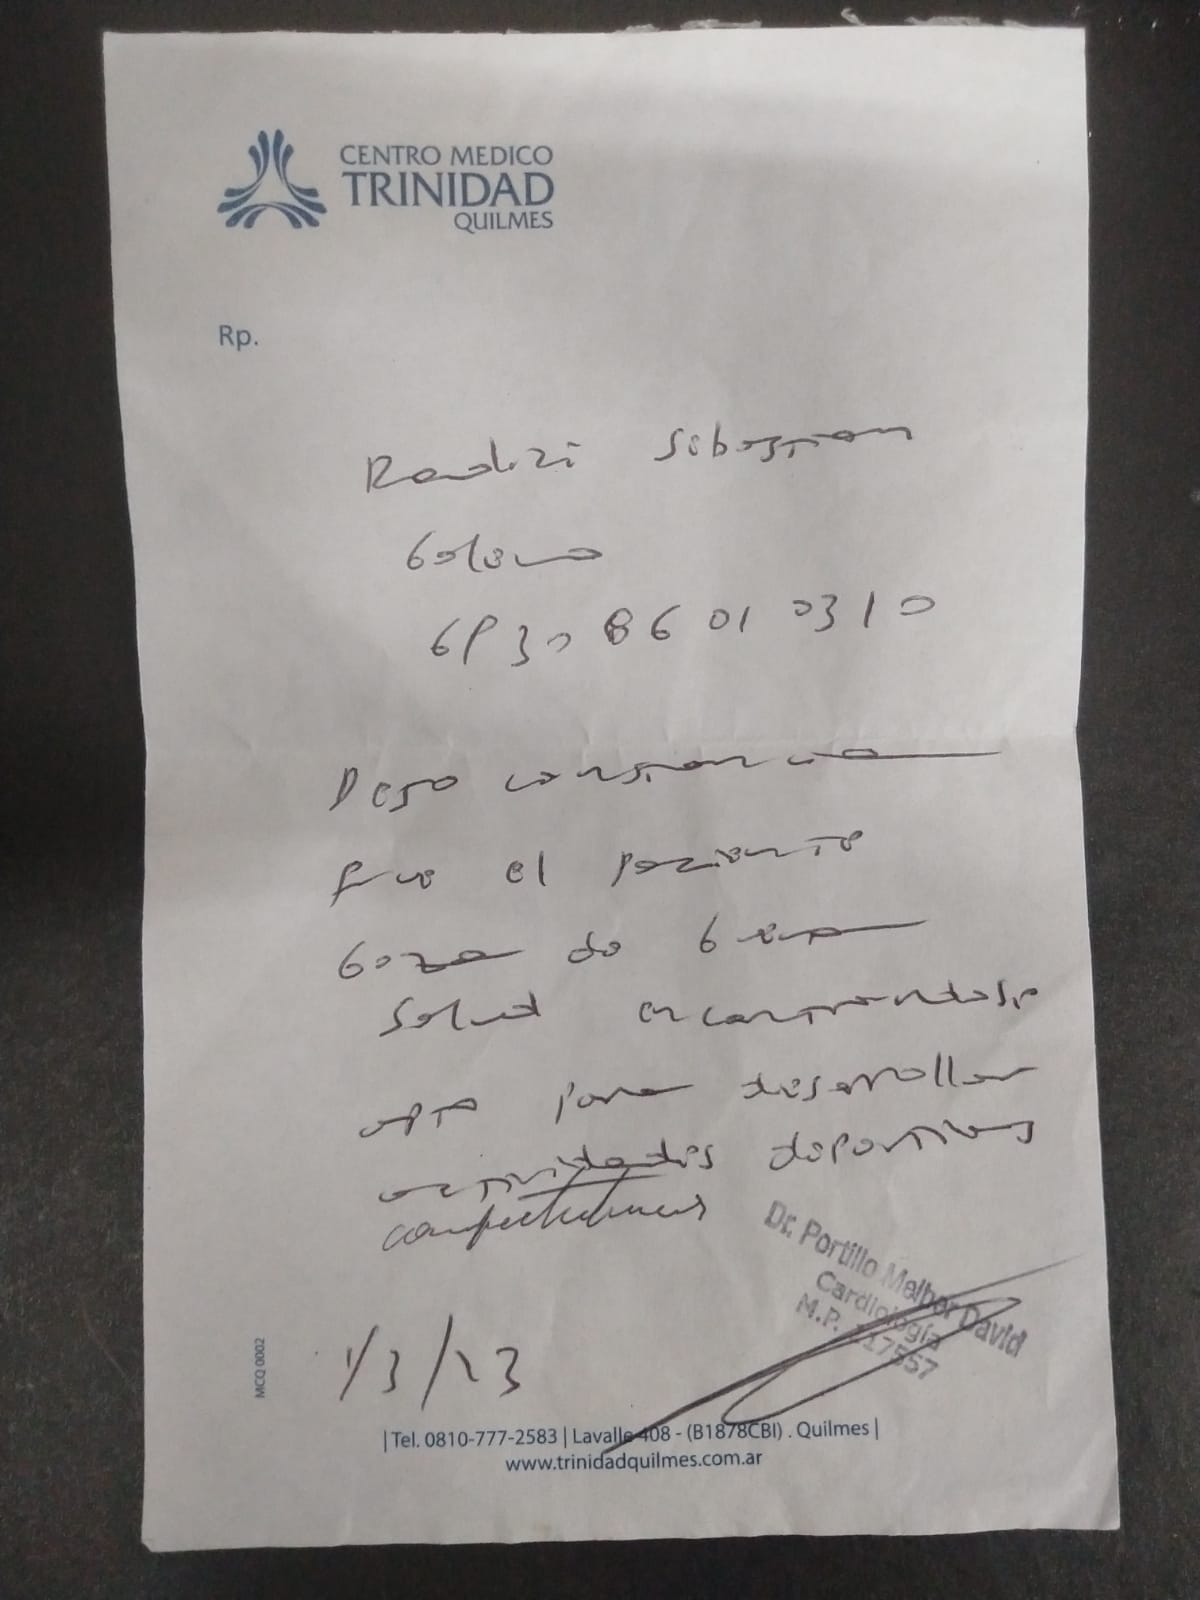 CENTRO MEDICO
TRINIDAD
QUILMES
Rp.
Sebastian
Galeno
6P30 86 01 0310
Dejo constancia
que el paciente
Goza de buena
Salud encontrandose
apto para desarrollar
actividades deportivas
competitivas
Dr. Portillo Melhor David
Cardiología
M.P. 117557
1/3/23
MCQ 0002
| Tel. 0810-777-2583 | Lavalle 408 - (B1878CBI) . Quilmes |
www.trinidadquilmes.com.ar